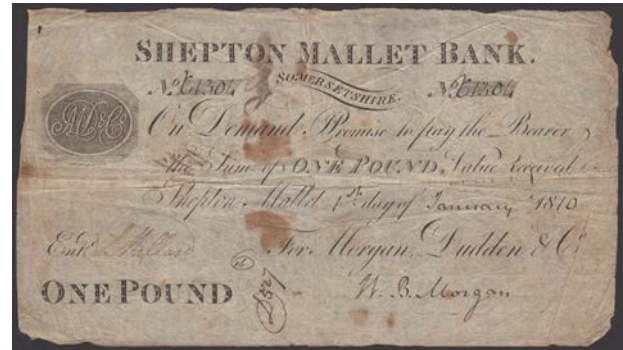 SHEPTON MALLET BANK.
SOMERSETSHIRE.
MD&Co
On Demand I Promise to pay the Bearer
the Sum of ONE POUND, Value Received
Shepton Mallet 1st day of January 1810
Entd
For Morgan, Dudden & Co
ONE POUND
W. B. Morgan